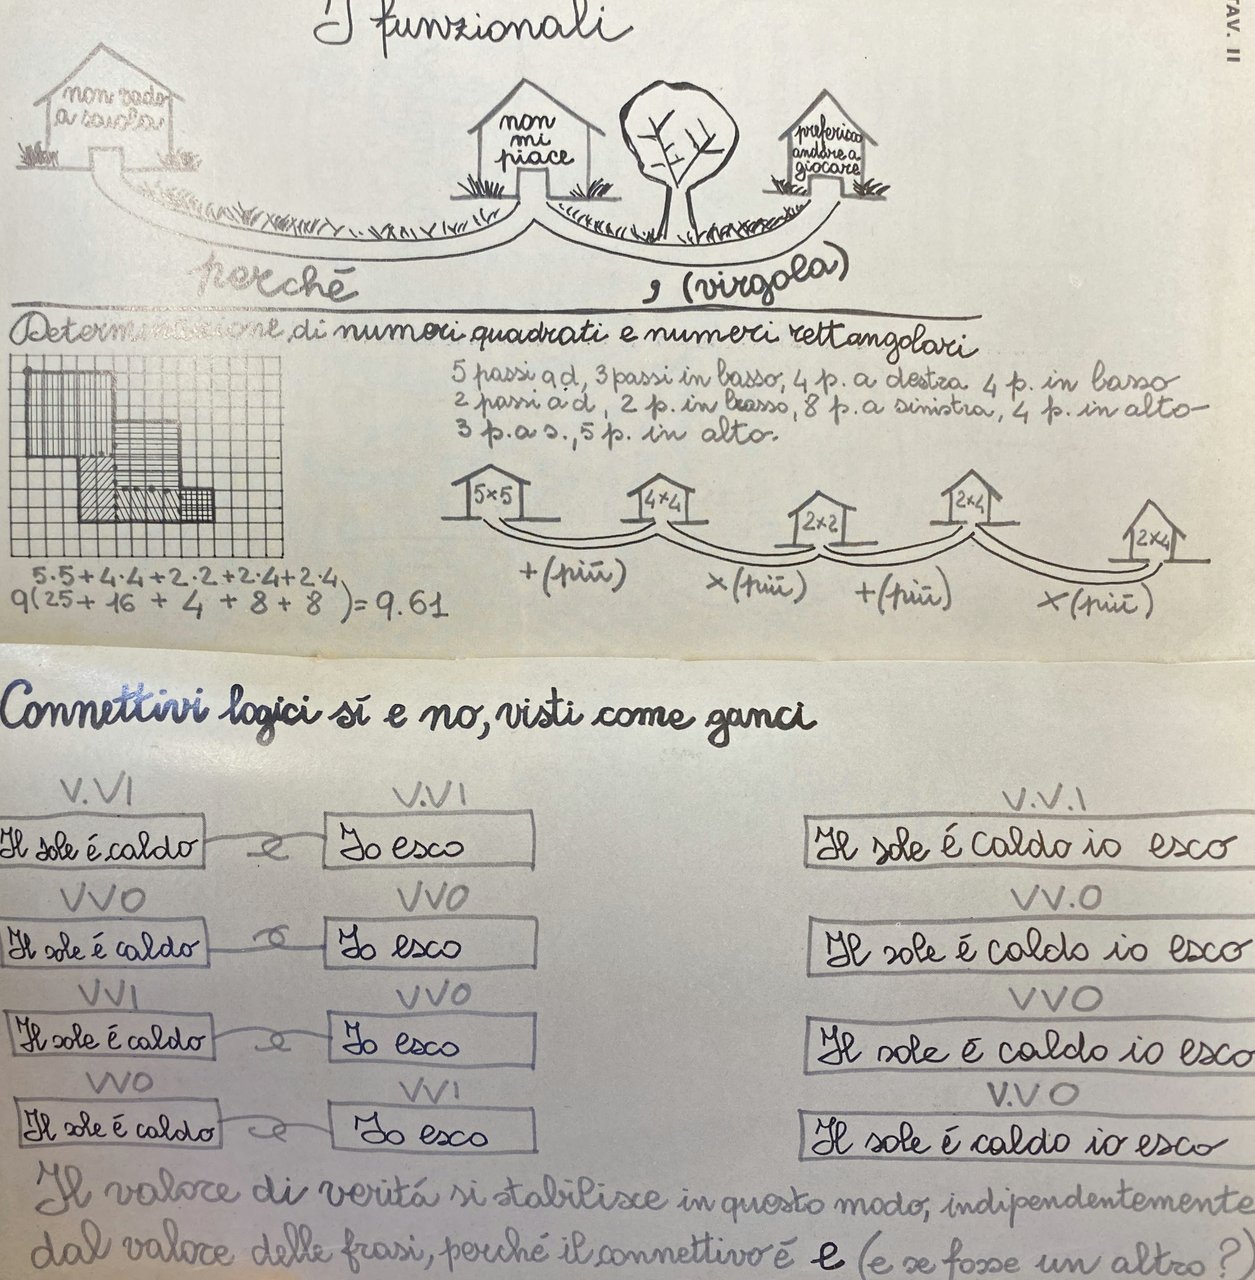 I funzionali
TAV. II
non vado
a scuola
non
mi
piace
preferisco
andare a
giocare
perché
, (virgola)
Determinazione di numeri quadrati e numeri rettangolari
5 passi a d, 3 passi in basso, 4 p. a destra 4 p. in basso
2 passi a d, 2 p. in basso, 8 p. a sinistra, 4 p. in alto
3 p. a s., 5 p. in alto.
5×5
4×4
2×2
2×4
2×4
+(più)
×(più)
+(più)
×(più)
5·5+4·4+2·2+2·4+2·4
9(25+ 16 + 4 + 8 + 8 )= 9.61
Connettivi logici sí e no, visti come ganci
V.V1 V.V1 V.V.1
Il sole é caldo e Io esco Il sole é caldo io esco
VV0 VV0 VV.0
Il sole é caldo e Io esco Il sole é caldo io esco
VV1 VV0 VV0
Il sole é caldo e Io esco Il sole é caldo io esco
VV0 VV1 V.V0
Il sole é caldo e Io esco Il sole é caldo io esco
Il valore di veritá si stabilisce in questo modo, indipendentemente
dal valore delle frasi, perché il connettivo é e (e se fosse un altro?)